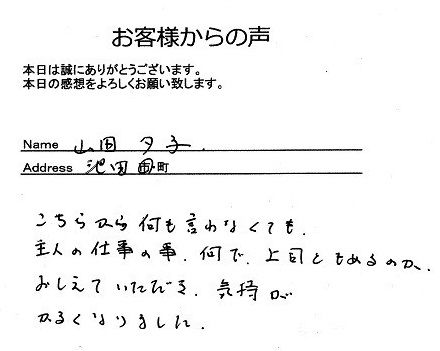 お客様からの声
本日は誠にありがとうございます。
本日の感想をよろしくお願い致します。
Name 山田 夕子.
Address 池田町
こちらから何も言わなくても、
主人の仕事の事、何で、上司ともあるのか、
おしえていただき、気持が
かるくなりました.